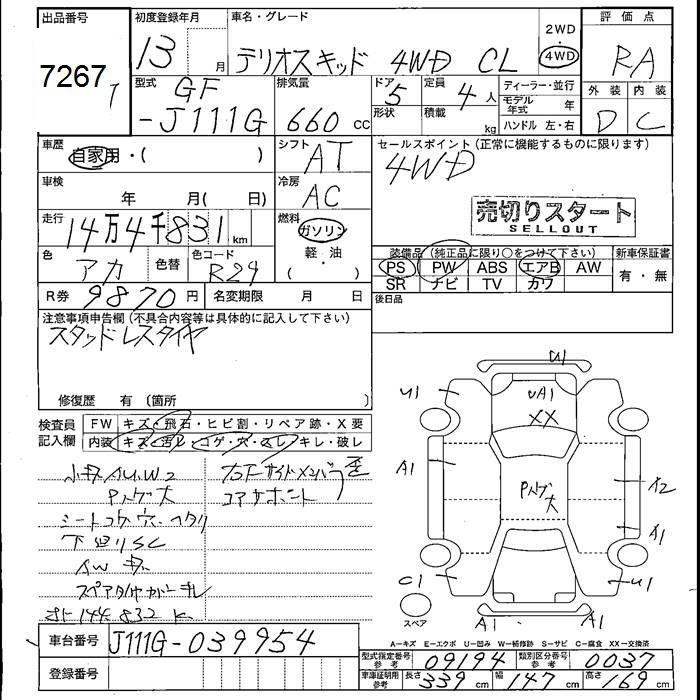 出品番号 初度登録年月 車名・グレード 2WD 評価点
7267 13 月 テリオスキッド 4WD CL 4WD RA
型式 GF 排気量 ドア 5 定員 4人 ディーラー・並行 外装 内装
-J111G 660 cc 形状 積載 kg モデル年式 年 D C
ハンドル 左・右
車歴 自家用・( ) シフト AT セールスポイント(正常に機能するものに限ります)
4WD
車検 年 月( 日) 冷房 AC
売切りスタート
SELLOUT
走行 14万4千831km 燃料 ガソリン
軽・油
( ・ )
装備品(純正品に限り〇をつけて下さい) 新車保証書
色 アカ 色替 色コード R29
PS PW ABS エアB AW 有・無
SR ナビ TV カワ
R券 9870円 名変期限 月 日 後日品
注意事項申告欄(不具合内容等は具体的に記入して下さい)
スタッドレスタイヤ
修復歴 有(箇所
検査員記入欄 FW キズ・飛石・ヒビ割・リペア跡・X要
内装 キズ・汚レ・コゲ・穴・スレ・キレ・破レ
小キズAU.W2 右F サイドメンバ
Pハゲ大 コアサポート
シートコゲ穴・ヘタリ
下廻りSC
AWキズ
スペアタイヤカバーキレ
144.832 K
U1
U1 UA1
XX
A1 Pハゲ大 A2
A1
C1 U1
スペア A1 A1
A-キズ E-エクボ U-凹み W-補修跡 S-サビ C-腐食 XX-交換済
車台番号 J111G-039954
型式指定番号 参考 09194 類別区分番号 参考 0037
登録番号
車庫証明用 参考 長さ 339cm 幅 147cm 高さ 169cm